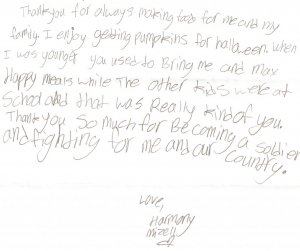 Thank you for always making food for me and my
family. I enjoy getting pumpkins for halloween. When
I was younger you used to Bring me and max
Happy meals while The other kids were at
School and that was Really kind of you.
Thank you So much for Becoming a soldier
and fighting for me and our country.
Love,
Harmony
Mizell